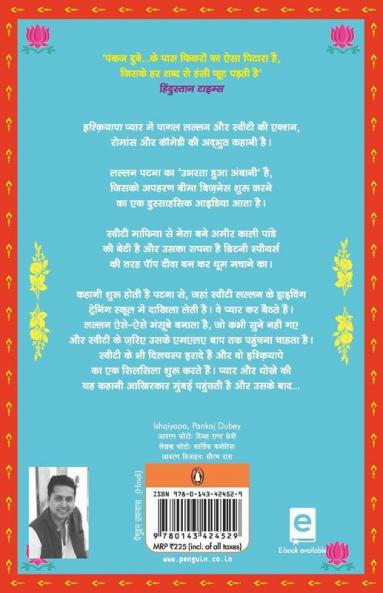 ‘पंकज दुबे...के पास फिकरों का ऐसा पिटारा है,
जिसके हर शब्द से हंसी फूट पड़ती है’
हिंदुस्तान टाइम्स
इश्कियापा प्यार में पागल लल्लन और स्वीटी की एक्शन,
रोमांस और कॉमेडी की अद्भुत कहानी है।
लल्लन पटना का ‘उभरता हुआ अंबानी’ है,
जिसको अपहरण बीमा बिज़नेस शुरू करने
का एक दुस्साहसिक आइडिया आता है।
स्वीटी माफिया से नेता बने अमीर काली पांडे
की बेटी है और उसका सपना है ब्रिटनी स्पीयर्स
की तरह पॉप दीवा बन कर धूम मचाने का।
कहानी शुरू होती है पटना से, जहां स्वीटी लल्लन के ड्राइविंग
ट्रेनिंग स्कूल में दाखिला लेती है। वे प्यार कर बैठते हैं।
लल्लन ऐसे-ऐसे मंसूबे बनाता है, जो कभी सुने नही गए
और स्वीटी के ज़रिए उसके एमएलए बाप तक पहुंचना चाहता है।
स्वीटी के भी दिलचस्प इरादे हैं और वो इश्कियापे
का एक सिलसिला शुरू करते हैं। प्यार और धोखे की
यह कहानी आखिरकार मुंबई पहुंचती है और उसके बाद...
Ishqiyapa, Pankaj Dubey
आवरण फोटो:
लेखक फोटो: कार्तिक
आवरण डिज़ाइन: सौरभ दास
पेंगुइन उपन्यास (Hindi)
ISBN 978-0-143-42452-9
9 780143 424529
MRP ₹225 (incl. of all taxes)
www.penguin.co.in
e
E-book available